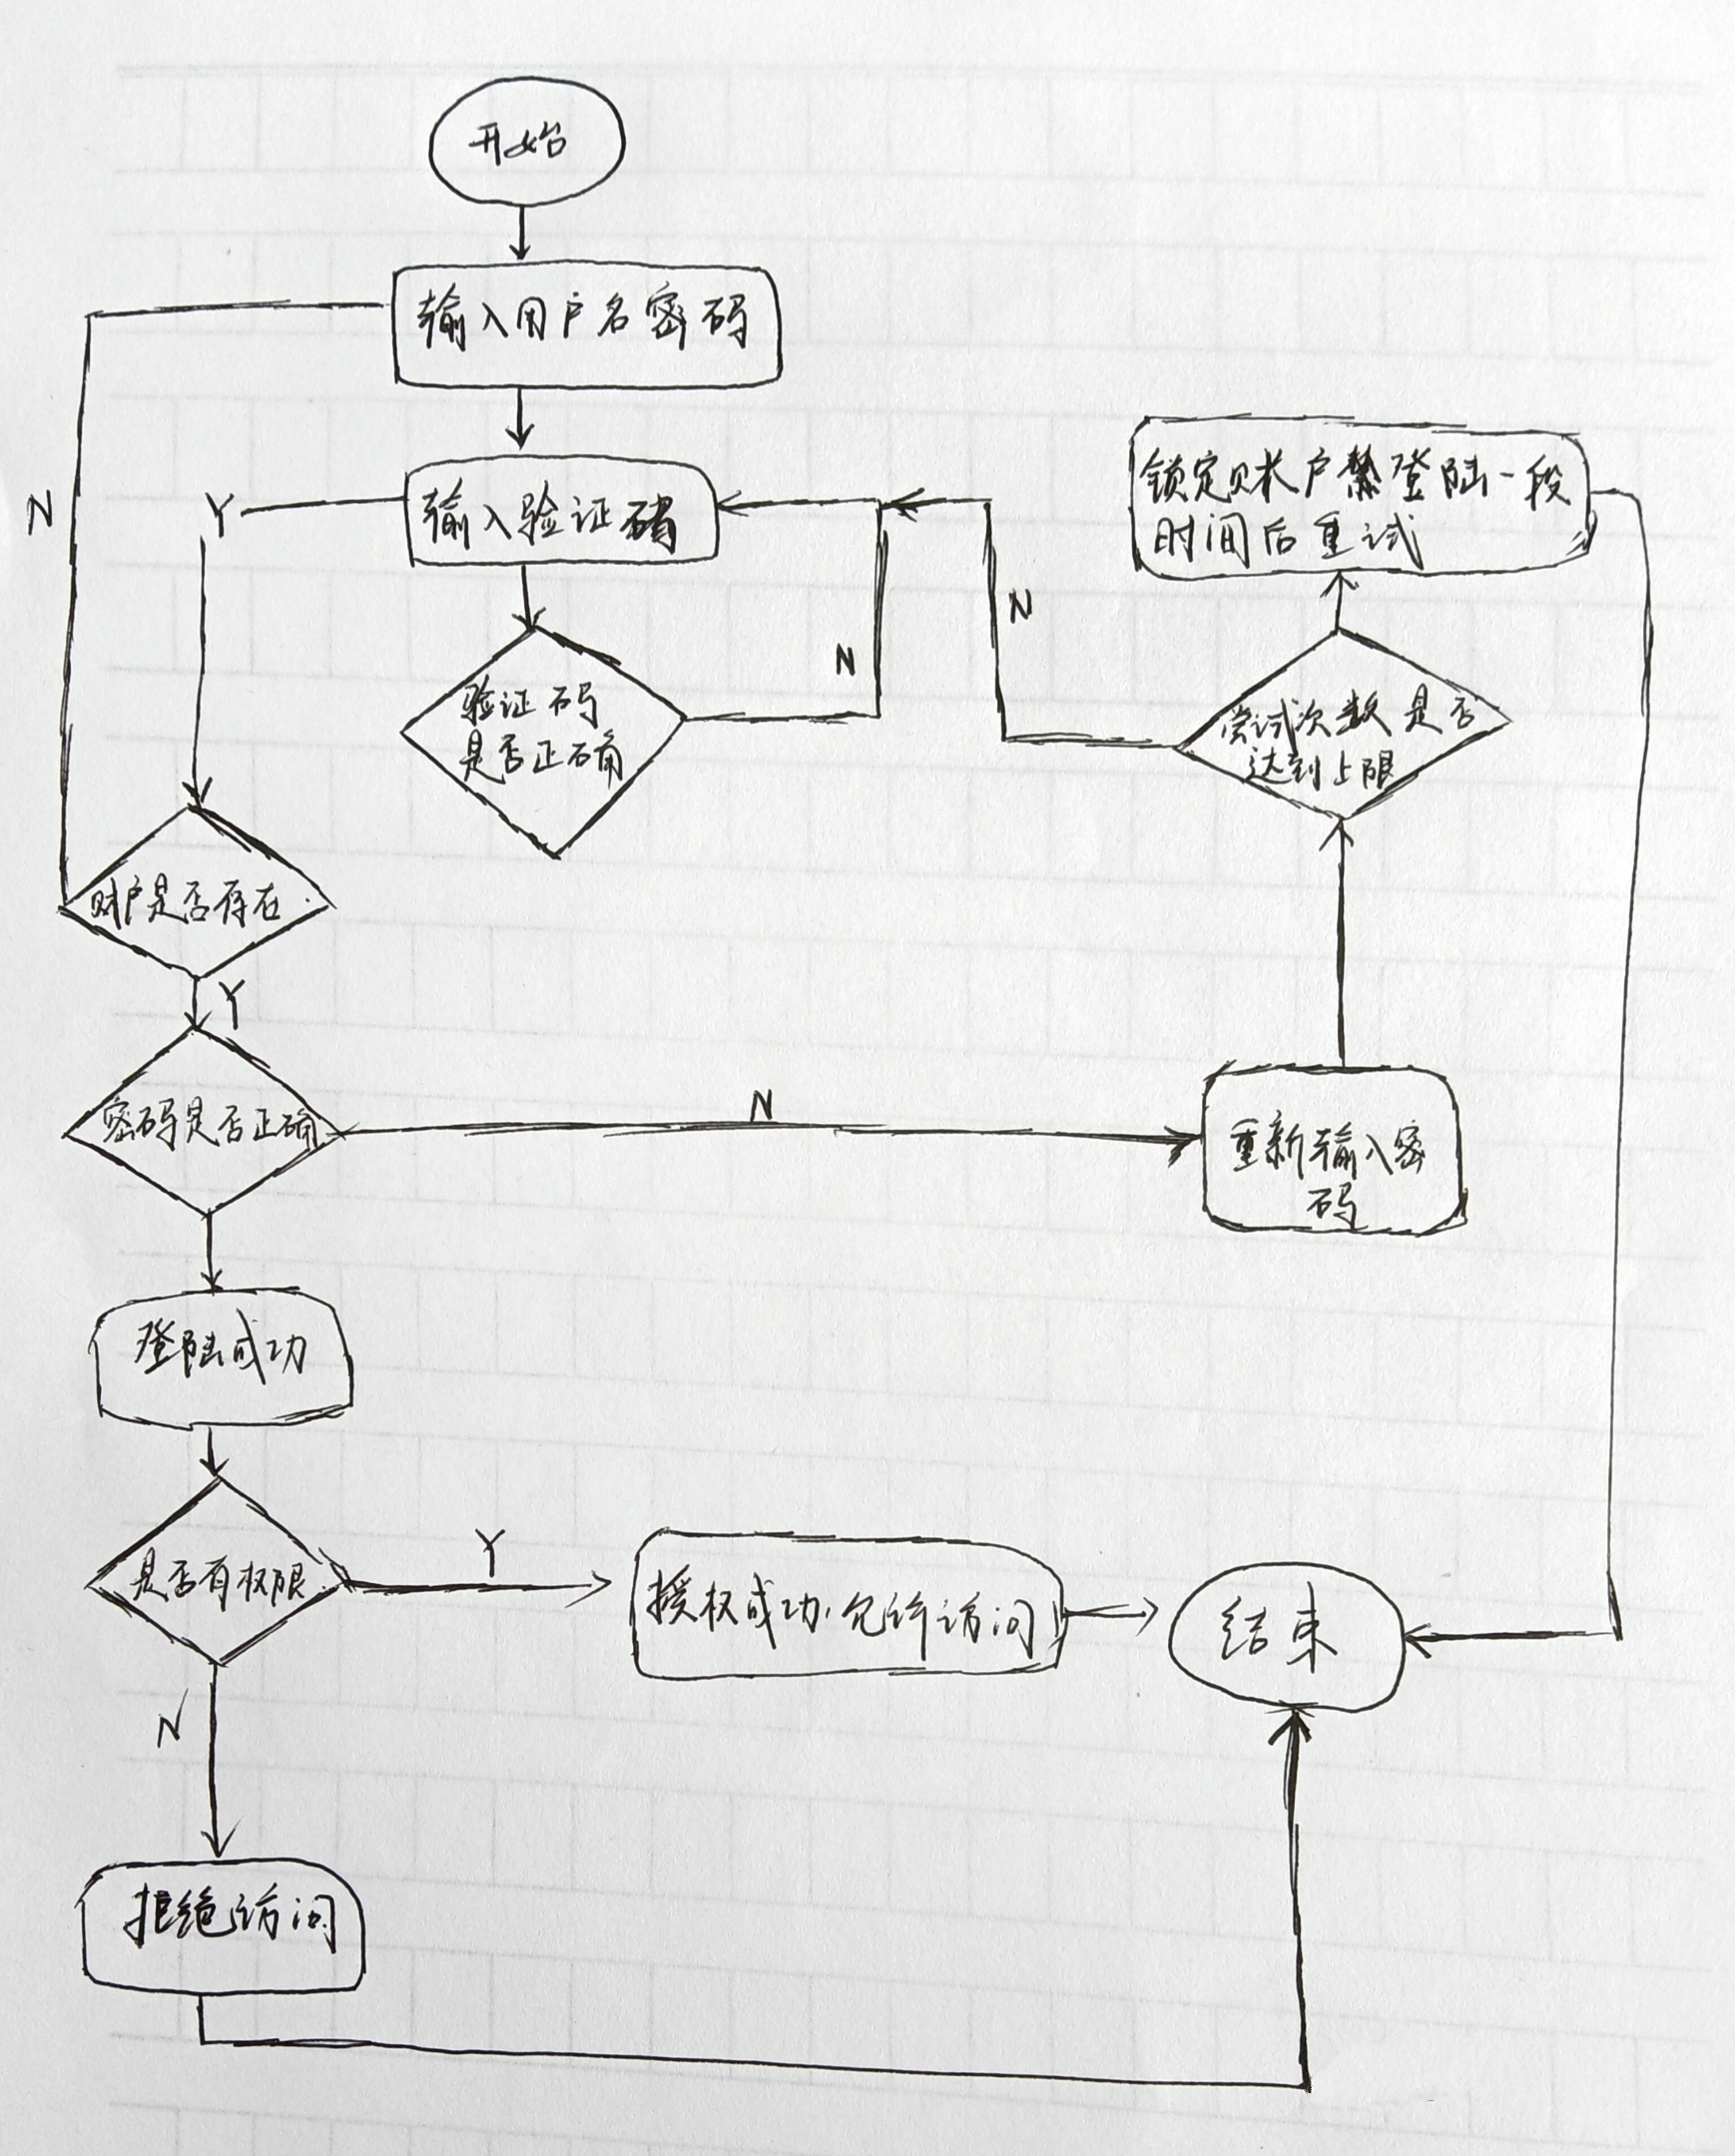 开始
输入用户名密码
N
输入验证码
Y
锁定账户禁登陆一段
时间后重试
N
N
验证码
是否正确
尝试次数是否
达到上限
账户是否存在
Y
密码是否正确
N
重新输入密
码
登陆成功
是否有权限
Y
授权成功,允许访问
结束
N
拒绝访问